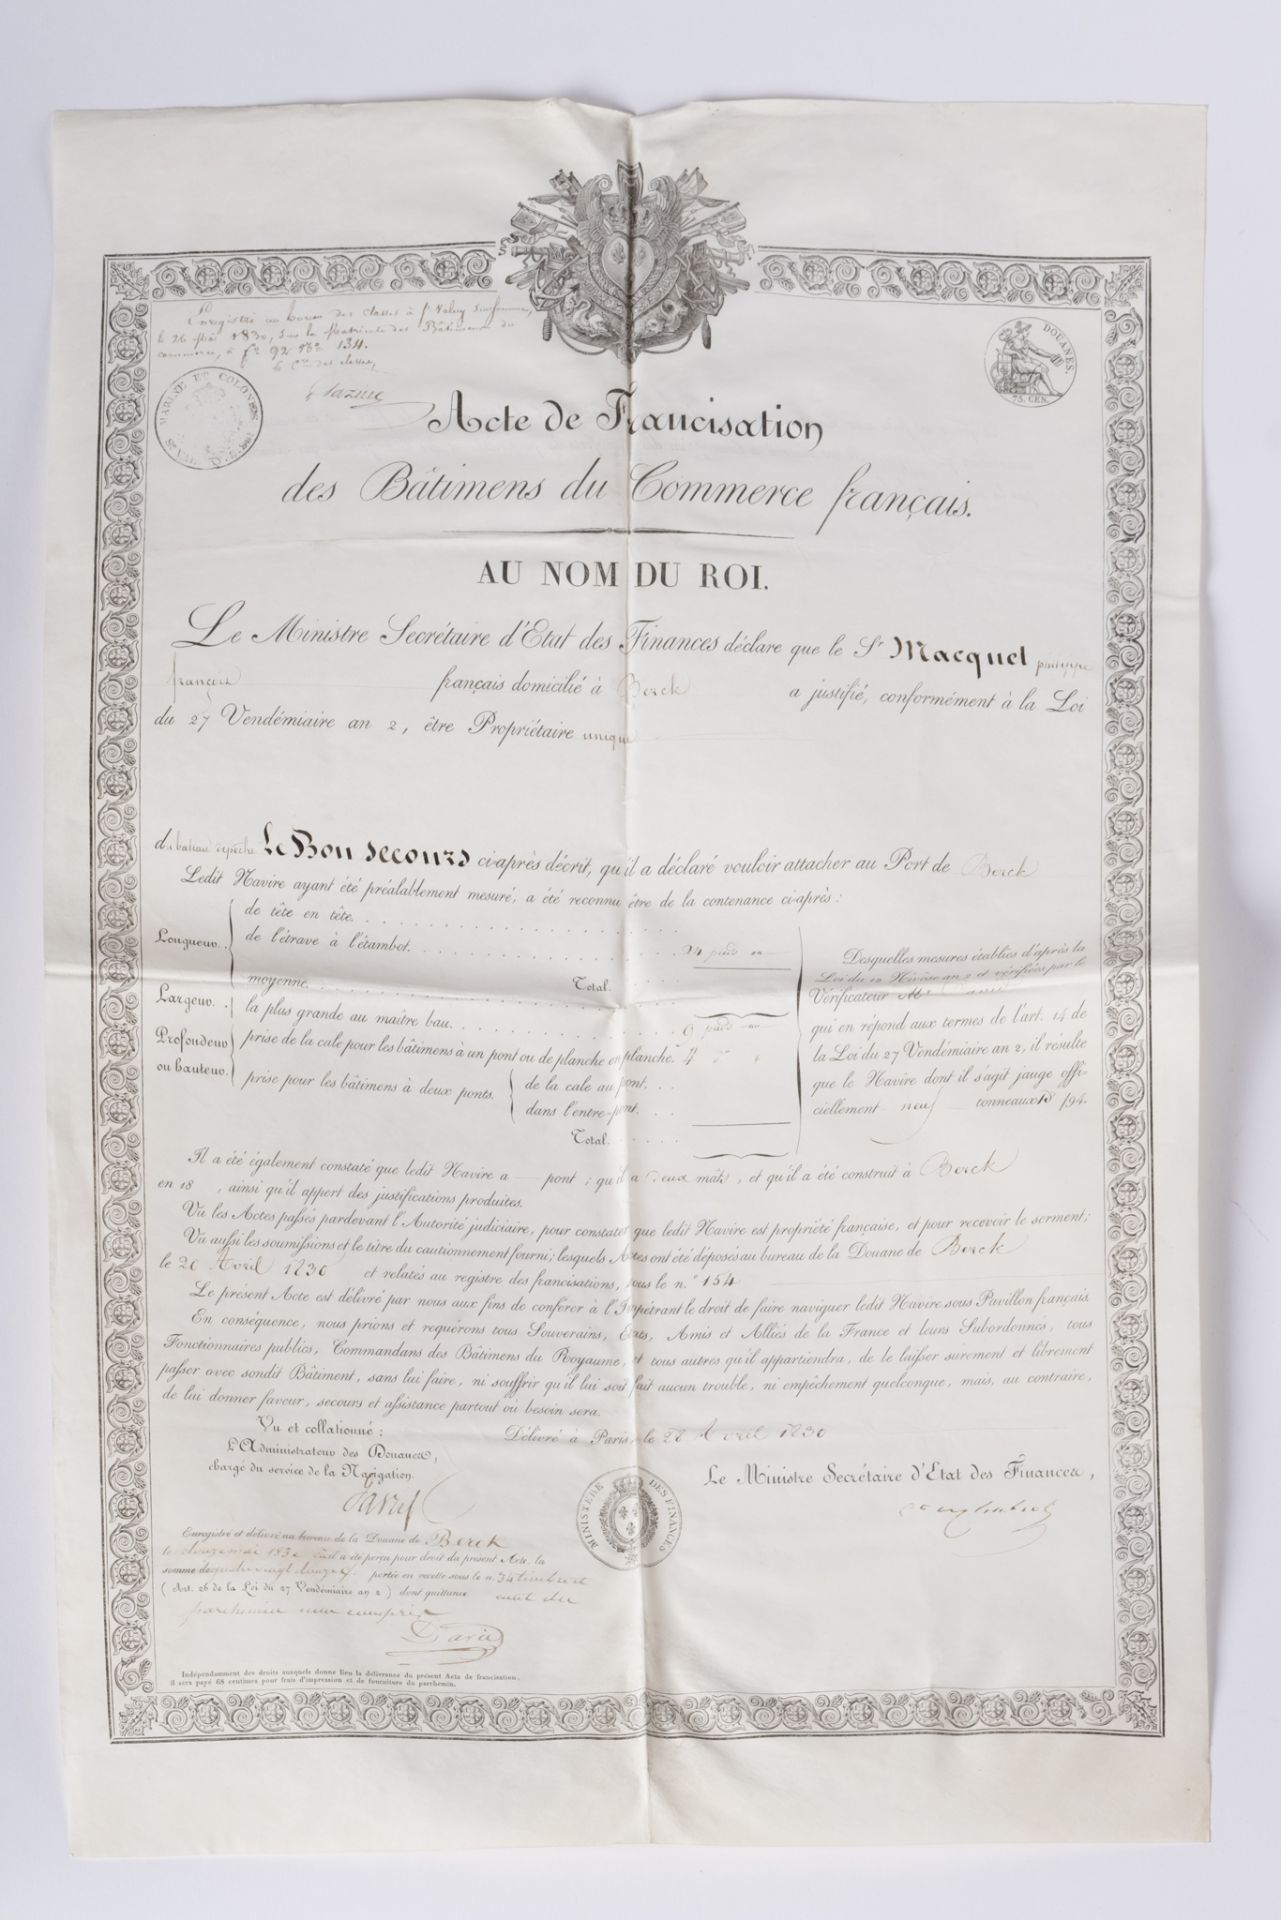 Enregistré au bureau des classes à St Valery Sur Somme,
le 26 Mai 1830, Sur la Matricule des Bâtimens du
commerce, à fo 92 No 134.
MARINE ET COLONIES
DOUANES.
75. CEN.
Acte de Francisation
des Bâtimens du Commerce français.
AU NOM DU ROI.
Le Ministre Secrétaire d'Etat des Finances déclare que le Sr Macquet philippe
françois français domicilié à Berck a justifié, conformément à la Loi
du 27 Vendémiaire an 2, être Propriétaire unique
du bateau Le Bon Secours ci-après décrit, qu'il a déclaré vouloir attacher au Port de Berck
Ledit Navire ayant été préalablement mesuré, a été reconnu être de la contenance ci-après :
Longueur. de tête en tête.
de l'étrave à l'étambot. 24 pieds
Total.
Largeur. moyenne.
la plus grande au maître bau. 9 pieds
Profondeur ou hauteur. prise de la cale pour les bâtimens à un pont ou de planche en planche. 4
prise pour les bâtimens à deux ponts. de la cale au pont.
dans l'entre-pont.
Total.
Desquelles mesures établies d'après la
Loi du 12 Nivôse an 2 et vérifiées par le
Vérificateur Mr
qui en répond aux termes de l'art. 14 de
la Loi du 27 Vendémiaire an 2, il résulte
que le Navire dont il s'agit jauge offi-
ciellement neuf tonneaux 18/94.
Il a été également constaté que ledit Navire a pont ; qu'il a deux mâts, et qu'il a été construit à Berck
en 18 , ainsi qu'il appert des justifications produites.
Vu les Actes passés pardevant l'Autorité judiciaire, pour constater que ledit Navire est propriété française, et pour recevoir le serment ;
Vu aussi les soumissions et le titre du cautionnement fourni ; lesquels Actes ont été déposés au bureau de la Douane de Berck
le 20 Avril 1830 et relatés au registre des francisations, sous le n.° 154
Le présent Acte est délivré par nous aux fins de conférer à l'Impétrant le droit de faire naviguer ledit Navire sous Pavillon français
En conséquence, nous prions et requérons tous Souverains, Etats, Amis et Alliés de la France et leurs Subordonnés, tous
Fonctionnaires publics, Commandans des Bâtimens du Royaume, et tous autres qu'il appartiendra, de le laisser sûrement et librement
passer avec sondit Bâtiment, sans lui faire, ni souffrir qu'il lui soit fait aucun trouble, ni empêchement quelconque, mais, au contraire,
de lui donner faveur, secours et assistance partout où besoin sera.
Délivré à Paris, le 28 Avril 1830
Vu et collationné :
L'Administrateur des Douanes,
chargé du service de la Navigation.
Le Ministre Secrétaire d'Etat des Finances,
MINISTÈRE DES FINANCES
Enregistré et délivré au bureau de la Douane de Berck
le douze mai 1830 il a été perçu pour droit du présent Acte, la
somme de portée en recette sous le n. 34
(Art. 26 de la Loi du 27 Vendémiaire an 2) dont quittance.
parchemin non compris
Indépendamment des droits auxquels donne lieu la délivrance du présent Acte de francisation,
il sera payé 68 centimes pour frais d'impression et de fourniture du parchemin.